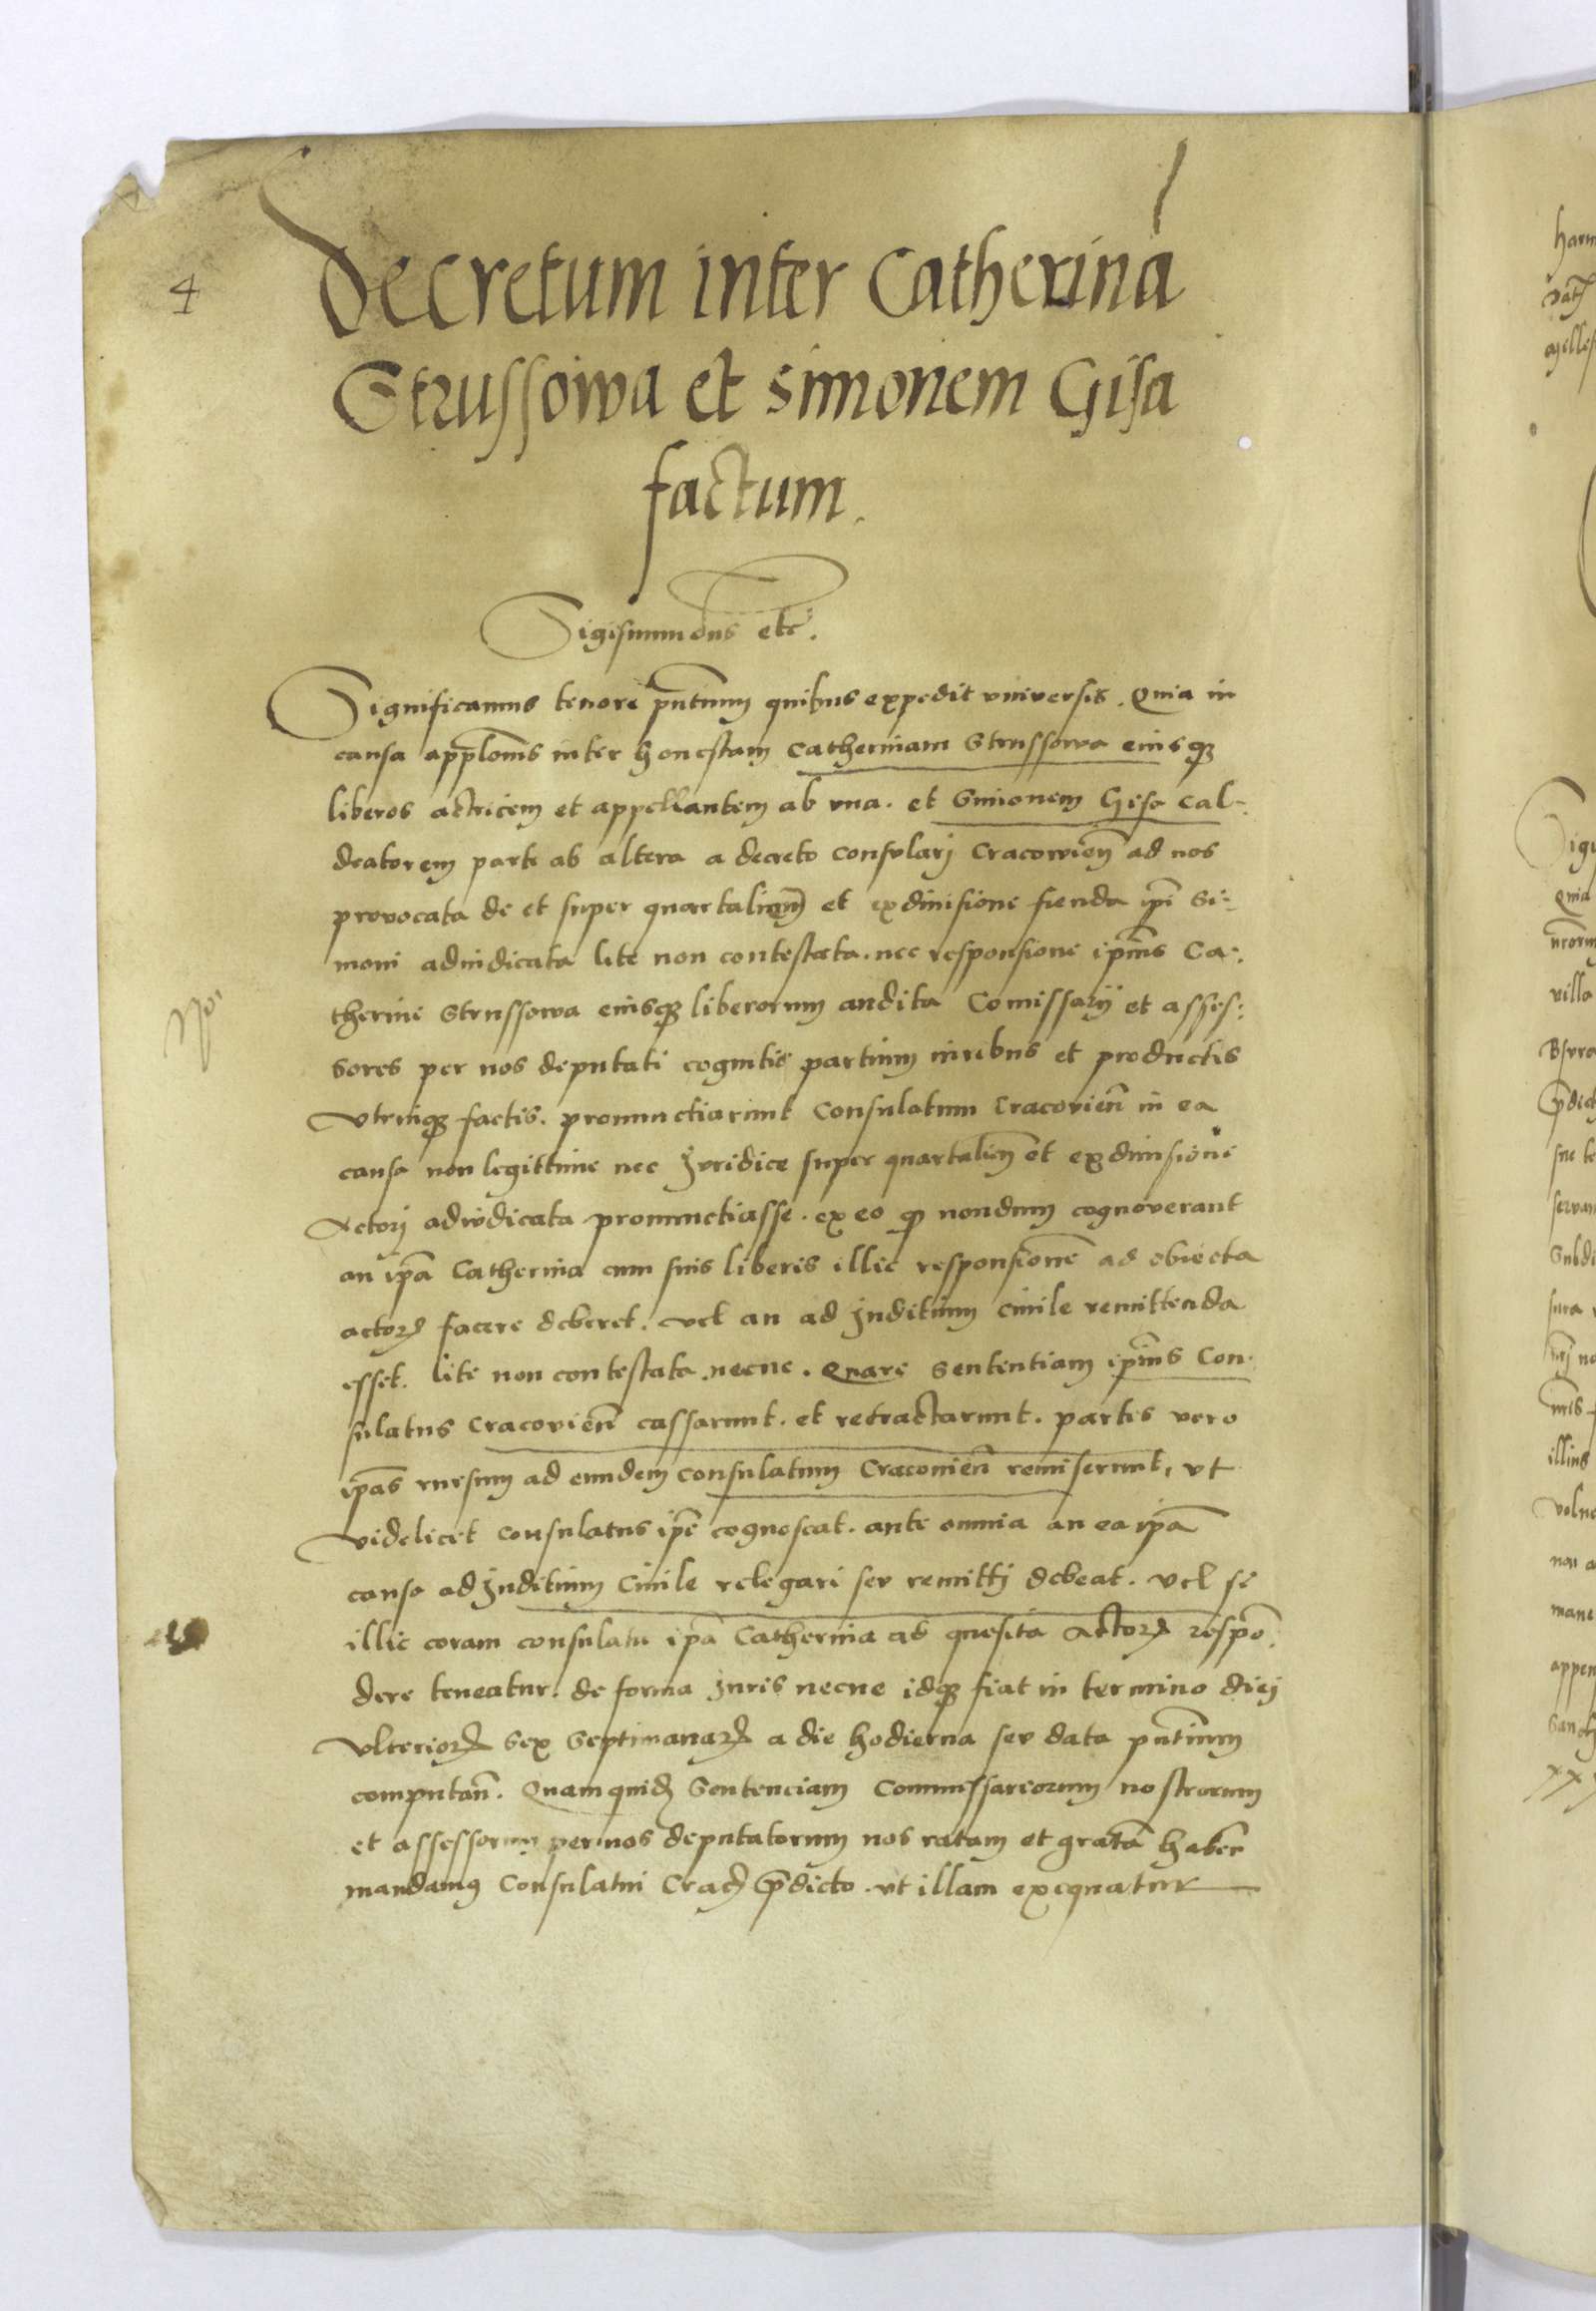 4
Decretum inter Catherinā
Strussowa et Simonem Gisa
factum.
Sigismundus etc̄.
Significamus tenore pn̄tium quibus expedit vniversis. Quia in
causa appl̄onis inter honestam Catherinam Strussowa eiusqꝫ
liberos actricem et appellantem ab vna. et Simonem Gisa Cal-
deatorem parte ab altera a decreto Consulari Cracowien̄ ad nos
provocata de et super quartalium et exdiuisione fienda ip̄i Si-
moni adiudicata lite non contestata. nec responsione ip̄ius Ca-
therine Strussowa eiusqꝫ liberorum audita Comissarij et asses-
No͡
sores per nos deputati cognitis partium iuribus et productis
vtrinqꝫ factis. pronunctiarunt Consulatum Cracovien̄ in ea
causa non legittime nec Juridice super quartalium et exdiuisione
Actori adiudicata pronunctiasse. ex eo q̄ nondum cognoverant
an ip̄a Catherina cum suis liberis illic responsionē ad obiecta
actorꝫ facere deberet. vel an ad Juditium Ciuile remittenda
esset. lite non contestata necne. Quare Sententiam ip̄ius Con-
sulatus Cracovien̄ cassarunt. et retractarunt. partes vero
ip̄as rursum ad eundem Consulatum Cracouien̄ remiserunt, vt
videlicet Consulatus ip̄e cognoscat. ante omnia an ea ip̄a
causa ad Juditium Ciuile relegari seu remitti debeat. vel si
illic coram consulatu ip̄a Catherina ad quesita Actorꝫ respō-
dere teneatur. de forma Juris necne idqꝫ fiat in termino diei
vlteriorꝫ Sex Septimanarꝫ a die hodierna seu data pn̄tium
computan̄. Quamquidꝫ Sentenciam Commissariorum nostrorum
et assessorum per nos deputatorum nos ratam et gratā haben̄
mandamꝰ Consulatui Cracꝫ p̄dicto. vt illam exequatur